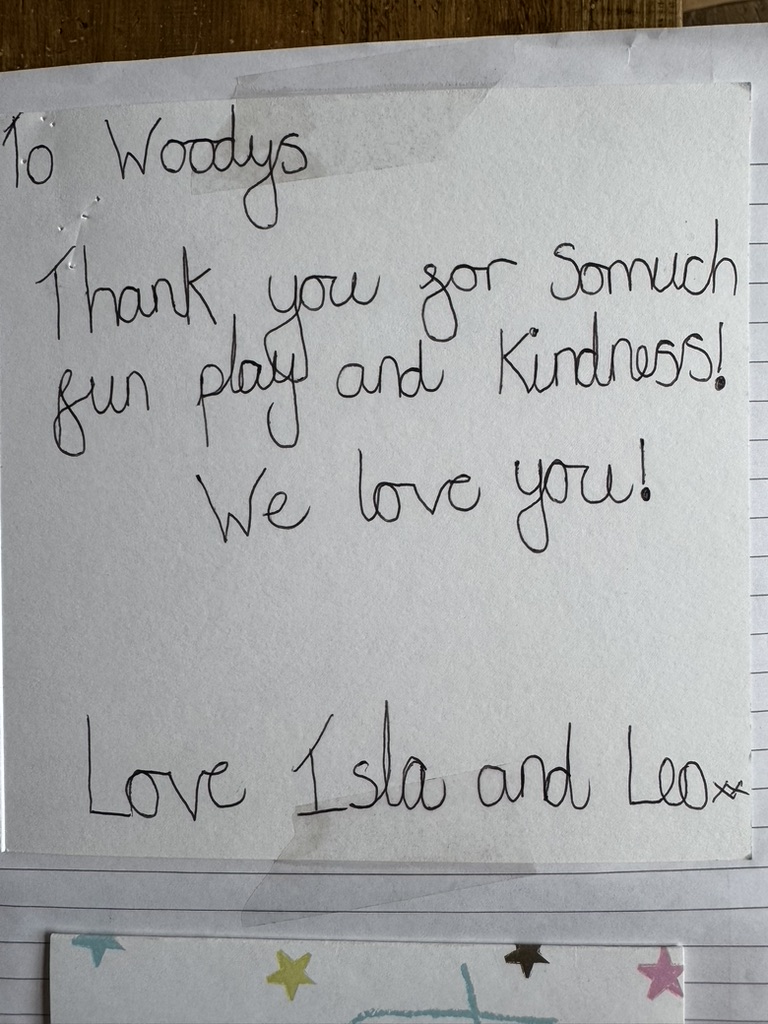 To Woodys
Thank you for somuch
fun play and kindness!
We love you!
Love Isla and Leo xx